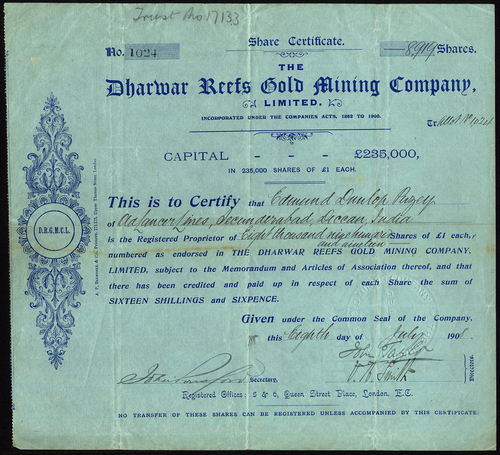 Trust No. 17133
No. 1024
Share Certificate.
8,919 Shares.
THE
Dharwar Reefs Gold Mining Company,
LIMITED.
INCORPORATED UNDER THE COMPANIES ACTS, 1862 TO 1900.
CAPITAL - - - £235,000,
IN 235,000 SHARES OF £1 EACH.
This is to Certify that Edmund Dunlop
of Lines, Secunderabad, Deccan, India
is the Registered Proprietor of Eight thousand nine hundred and nineteen Shares of £1 each,
numbered as endorsed in THE DHARWAR REEFS GOLD MINING COMPANY,
LIMITED, subject to the Memorandum and Articles of Association thereof, and that
there has been credited and paid up in respect of each Share the sum of
SIXTEEN SHILLINGS and SIXPENCE.
Given under the Common Seal of the Company,
this Eighth day of July 190
John Taylor
Directors.
Secretary.
Registered Offices: 5 & 6, Queen Street Place, London, E.C.
NO TRANSFER OF THESE SHARES CAN BE REGISTERED UNLESS ACCOMPANIED BY THIS CERTIFICATE.
D.R.G.M.C.L.